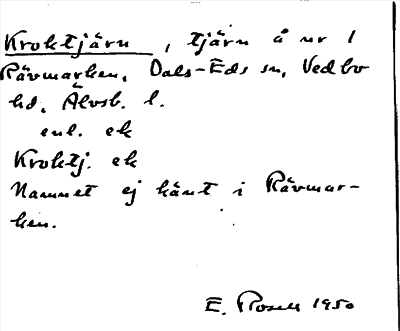 Kroktjärn, tjärn å nr 1
Rävmarken, Dals-Eds sn, Vedbo
hd, Älvsb. l.
enl. ek
Kroktj. ek
Namnet ej känt i Rävmar-
ken.
E. Rosell 1950